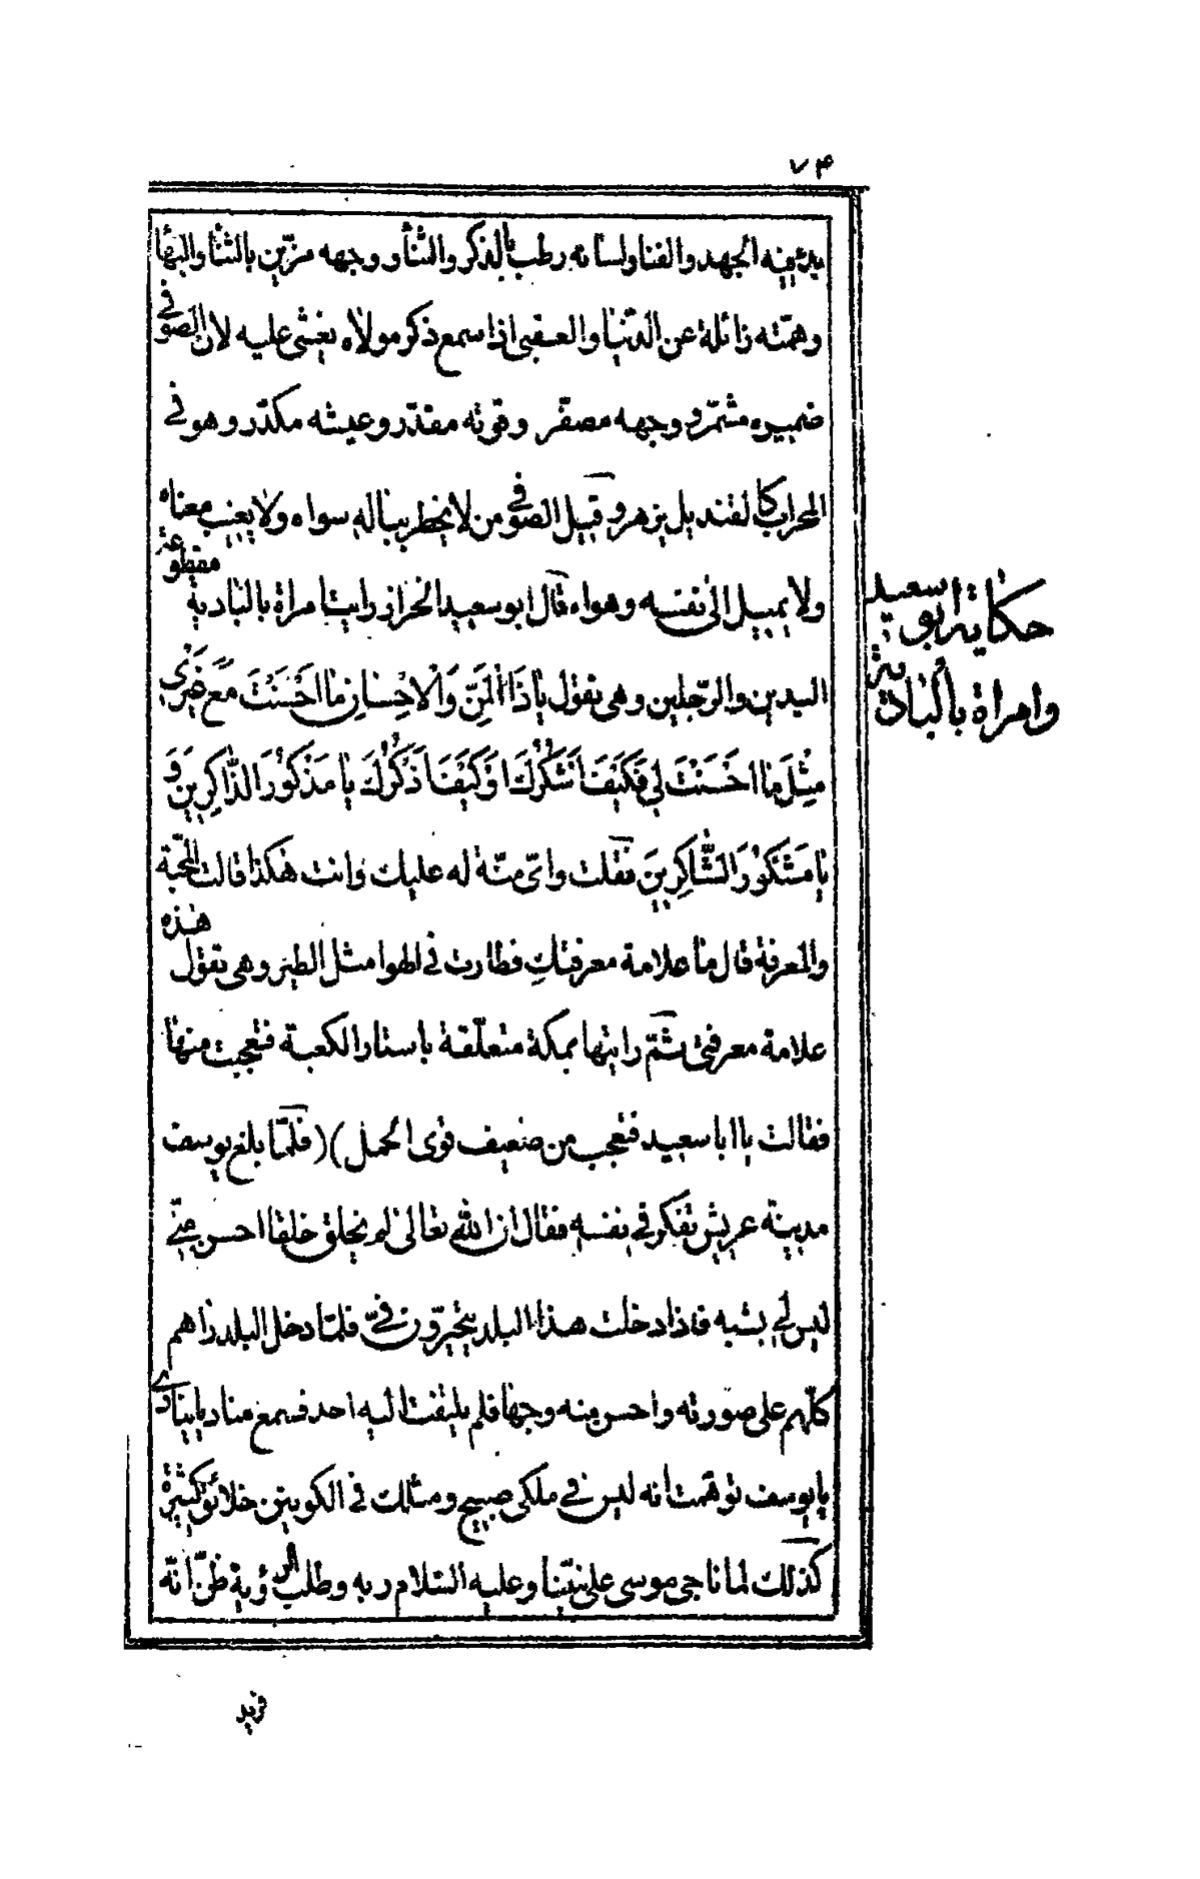 ٧۴
يذيقه الجهد والفنا ولسانه رطب بالذكر والثنا و وجهه مزيّن بالثنا والبها
وهمّته زائلة عن الدّنيا والعقبى اذا سمع ذكر مولاه يغشى عليه لان الصّوفي
ضميره مشمّر و وجهه مصفّر وقوته مقدّر وعيشه مكدّر وهو في
المحراب كالقنديل يزهر و قيل الصّوفي من لا يخطر بباله سواه ولا يغيب معناه
ولا يميل الى نفسه وهواه قال ابو سعيد الخراز رايت امراة بالبادية مقطوعة
اليدين والرّجلين وهى تقول يا ذَا الْمَنِّ وَالْاِحْسانِ ما اَحْسَنْتَ مَعَ غَيْرى
مِثْلَ ما اَحْسَنْتَ لي فَكَيْفَ اَشْكُرُكَ اَوْ كَيْفَ اَذْكُرُكَ يا مَذْكُوْرَ الذّاكِرِيْنَ وَ
يا مَشْكُوْرَ الشّاكِرِيْنَ فقلت واىّ منّة له عليك وانت هكذا قالت المحبّة
والمعرفة قال ما علامة معرفتكِ فطارت في الهوا مثل الطير وهى تقول هذه
علامة معرفتى ثمّ رايتها بمكة متعلّقة باستار الكعبة فتعجبت منها
فقالت يا ابا سعيد فتعجب من ضعيف قوى الحمل )( فلمّا بلغ يوسف
مدينة عريش تفكر في نفسه فقال ان الله تعالى لم يخلق خلقا احسن منّي
ليس لي يشبه فاذا دخلت هذا البلد يتحيّرون فيّ فلمّا دخل البلد راهم
كلّهم على صورته واحسن منه وجها فلم يلتفت اليه احد فسمع مناديا ينادى
يا يوسف توهّمت انه ليس في ملكى صبيح ومثلك في الكونين خلائق كثيرة
كذلك لما ناجى موسى على نبيّنا وعليه السّلام ربه وطلب الرؤية ظنّ انّه
حكاية ابو سعيد
وامراة بالبادية
فريد